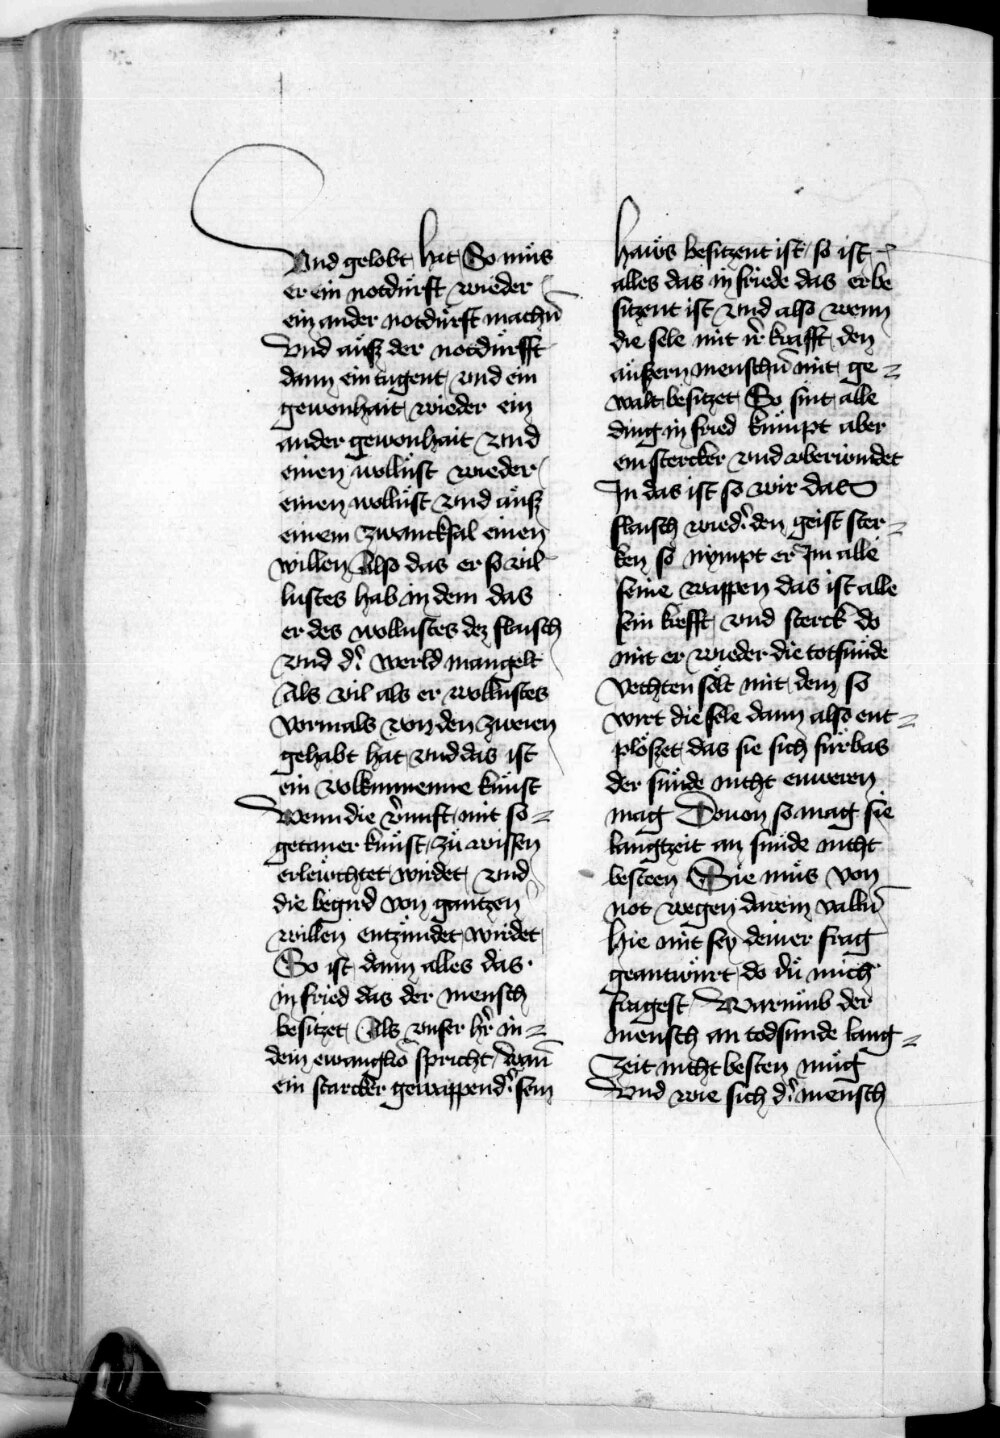 Vnd gelobt hat So můs
er ein notdurft wieder
ein ander notdurft machn̄
Vnd auß der notdurfft
dann ein tugent vnd ein
gewonhait wieder ein
ander gewonhait vnd
einen wollust wieder
einen wollust vnd auß
einem zwancksal einen
willen Also das er so vil
lustes hab in dem das
er des wollustes dez flaisch
vnd d̾ werld mangelt
Als vil als er wollustes
vormals von den zweien
gehabt hat vnd das ist
ein volkummenne kunst
Wenn die v̾nunft mit so⸗
getaner kunst zu wissen
erleuchtet wirdet vnd
die begird von gantzen
willen entzundet wirdet
So ist dann alles das
in fried das der mensch
besitzet Als vnser hr̄ in⸗
dem ewanglio spricht wan̄
ein starcker gewappend̾ sein
haws besitzent ist so ist
alles das in friede das er be
sitzent ist vnd also wenn
die sele mit ir̄ krafft den
außern menschn̄ mit ge⸗
walt besitzet So sint alle
ding in fried kumpt aber
ein stercker vnd vberwindet
In das ist so wir das
flaisch wied̾ den geist ster⸗
ken so nympt er Im alle
seine wappen das ist alle
sein krefft vnd sterck do
mit er wieder die totsunde
vechten solt mit dem so
wirt die sele dann also ent⸗
plößet das sie sich furbas
der sunde nicht erweren
mag Douon so mag sie
langtzeit an sunde nicht
besteen Sie můs von
not wegen darein valln̄
Hie mit sey deiner frag
geantwurt do du mich
fragest Warumb der
mensch an todsunde lang⸗
zeit nicht besten mug
Vnd wie sich d̾ mensch